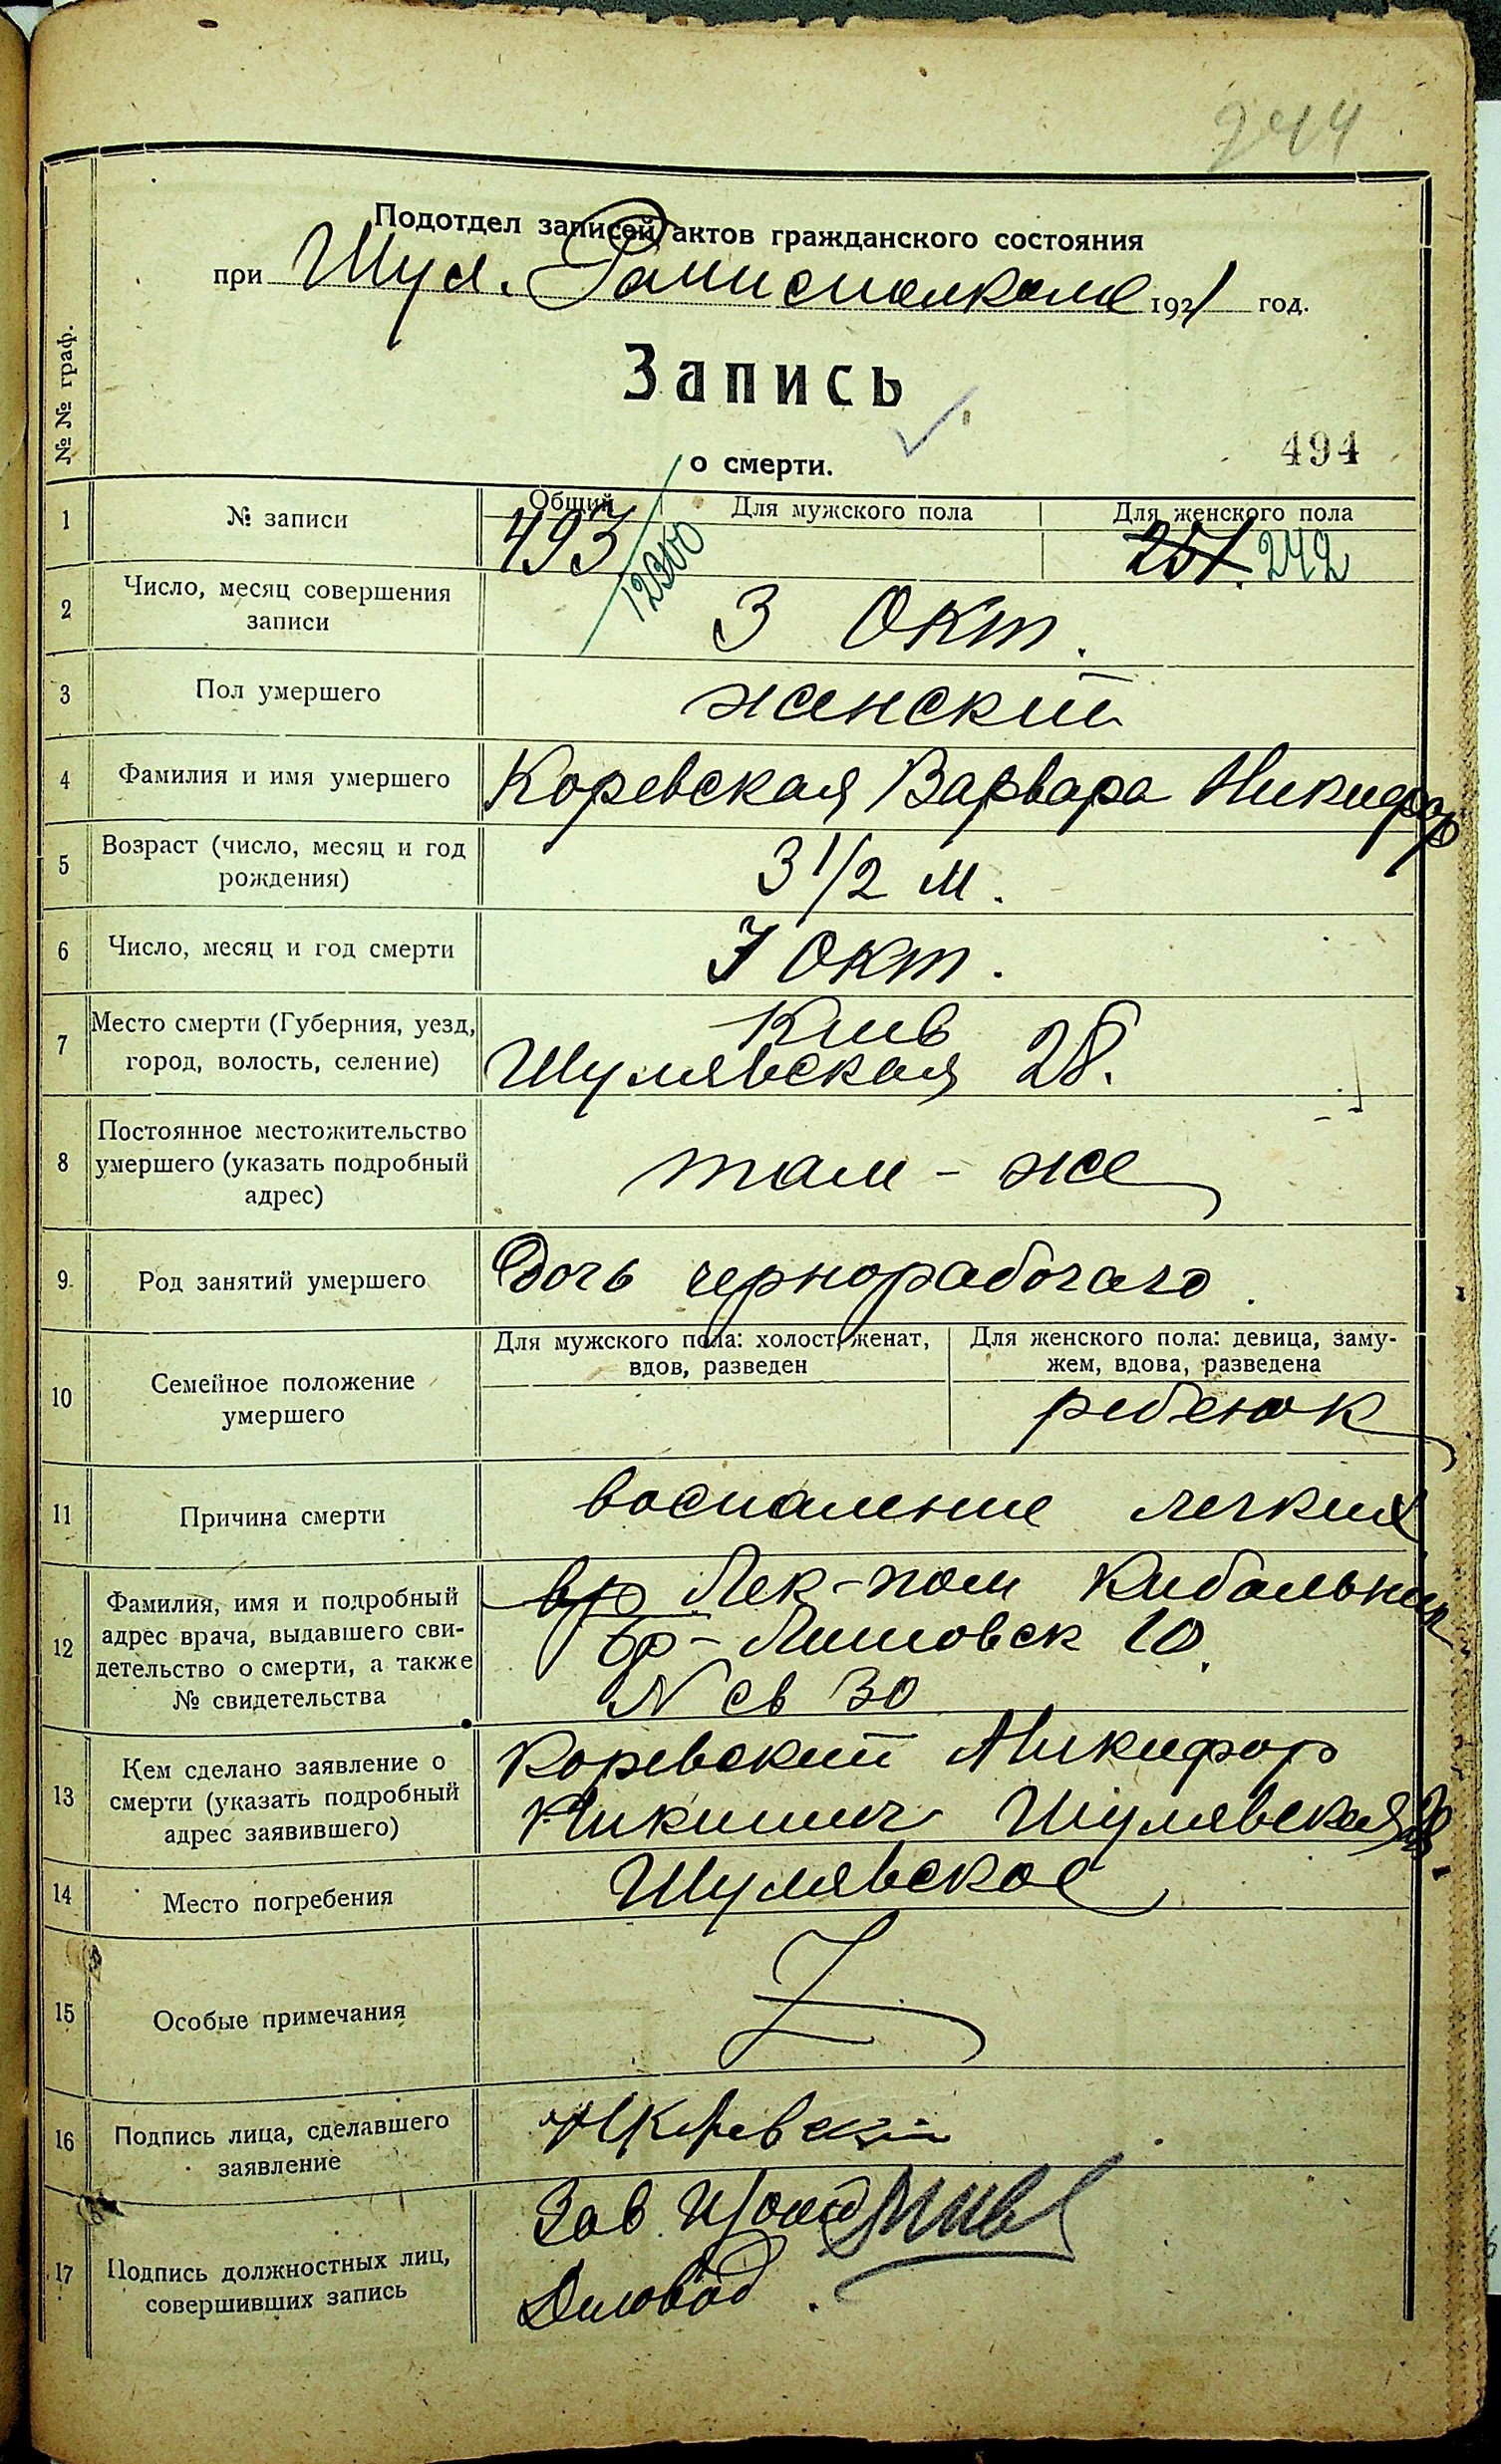 244
Подотдел записей актов гражданского состояния
при Шул. Райисполкоме 1921 год.
Запись
о смерти.
494
№ № граф.
1 № записи Общий Для мужского пола Для женского пола
493 12300 251. 242
2 Число, месяц совершения записи 3 Окт.
3 Пол умершего женский
4 Фамилия и имя умершего Коревская Варвара Никифор
5 Возраст (число, месяц и год рождения) 3 1/2 м.
6 Число, месяц и год смерти Окт.
7 Место смерти (Губерния, уезд, город, волость, селение) Киев
Шулявская 28.
8 Постоянное местожительство умершего (указать подробный адрес) там - же
9 Род занятий умершего Дочь чернорабочаго.
10 Семейное положение умершего Для мужского пола: холост, женат, вдов, разведен Для женского пола: девица, замужем, вдова, разведена
ребенок
11 Причина смерти воспаление легких
12 Фамилия, имя и подробный адрес врача, выдавшего свидетельство о смерти, а также № свидетельства вр Лек-пом Кибальник
Бр-Литовск 10.
N св 30
13 Кем сделано заявление о смерти (указать подробный адрес заявившего) Коревский Никифор
Никитич Шулявская 28.
14 Место погребения Шулявское
15 Особые примечания Z
16 Подпись лица, сделавшего заявление Н Коревский
17 Подпись должностных лиц, совершивших запись Зав.
Деловод.